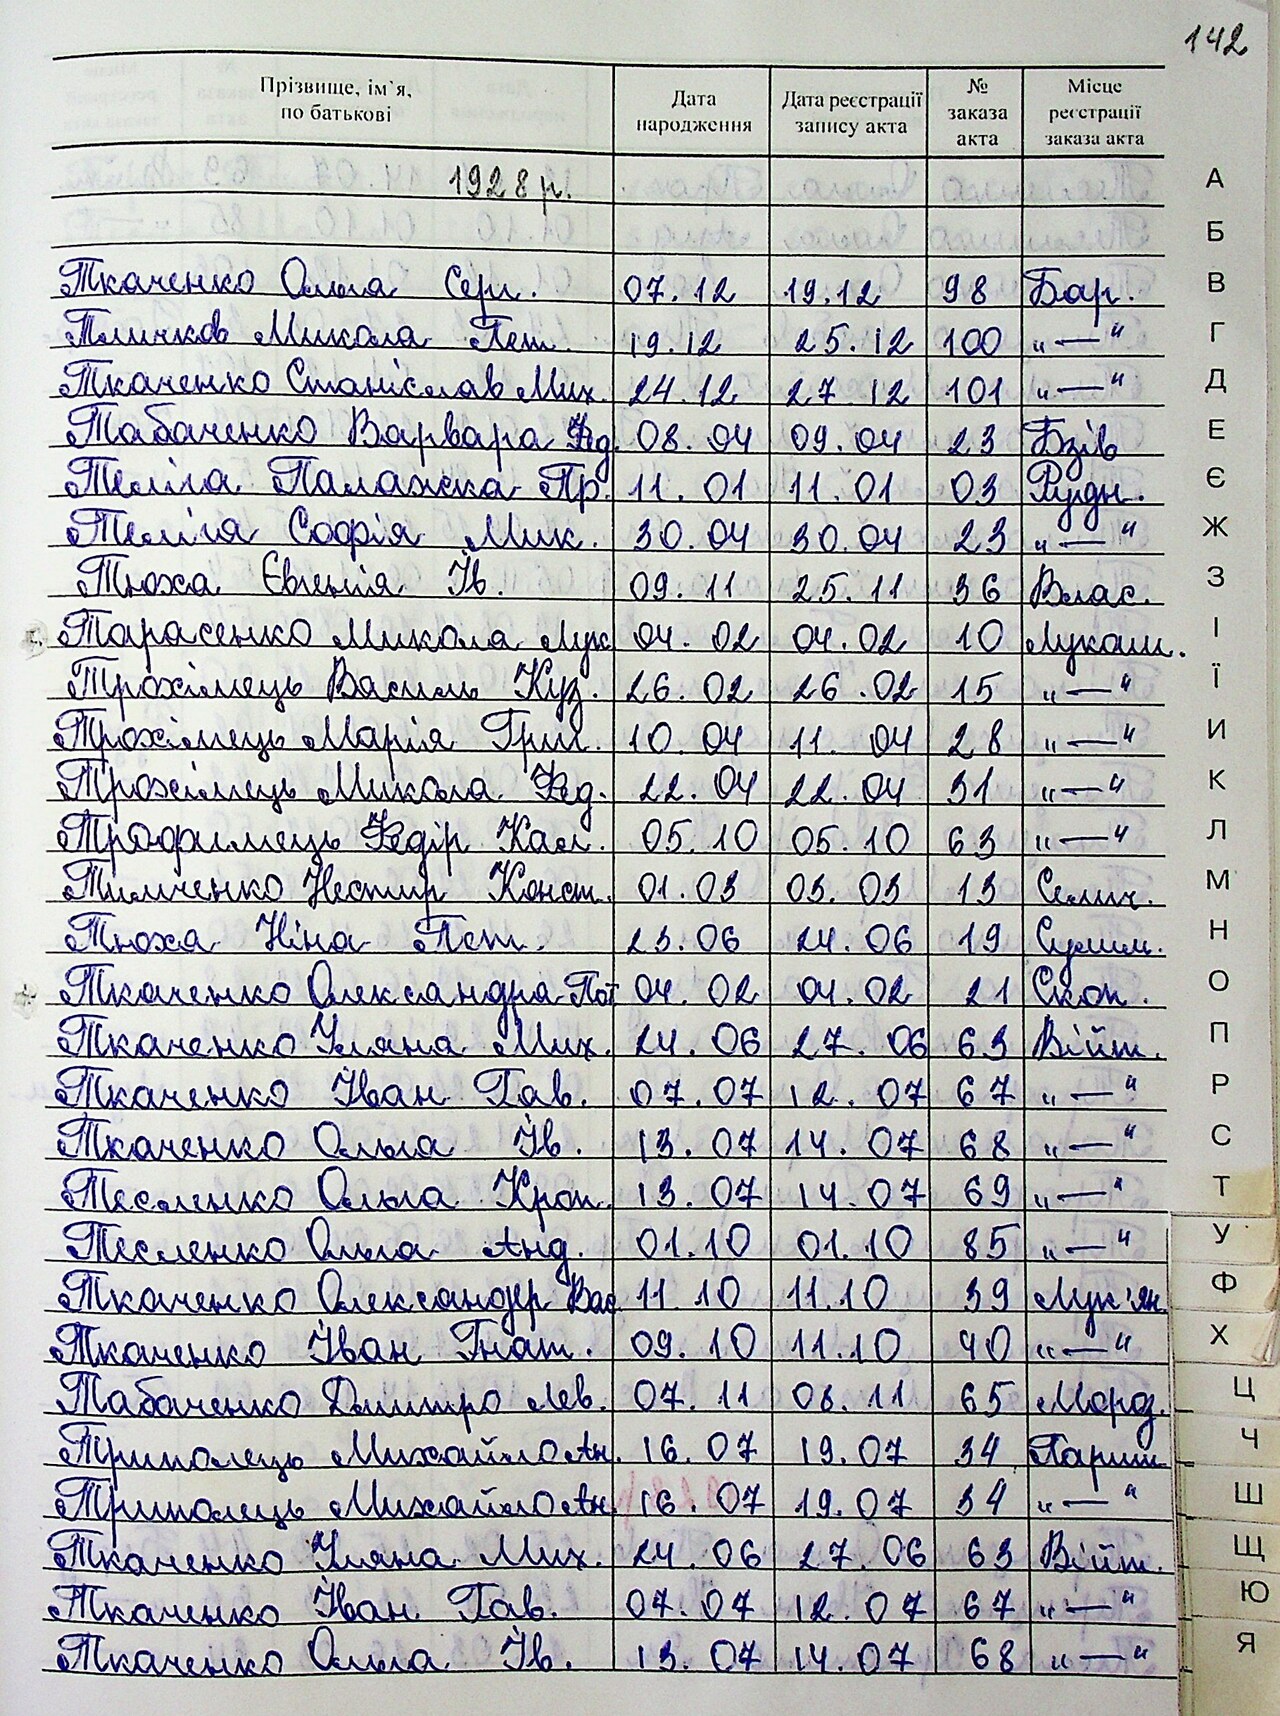 142
Прізвище, ім'я, по батькові | Дата народження | Дата реєстрації запису акта | № заказа акта | Місце реєстрації заказа акта
1928 р.
Ткаченко Ольга Серг. 07.12 19.12 98 Бар.
Микола Пет. 19.12 25.12 100 „—"
Ткаченко Станіслав Мих. 24.12 27 12 101 „—"
Табаченко Варвара Фед. 08.04 09.04 23 Бзів
Теліга Палажка Пр. 11.01 11.01 03 Рудн.
Теліга Софія Мик. 30.04 30.04 23 „—"
Тюха Євгенія Ів. 09.11 25.11 36 Влас.
Тарасенко Микола Лук 04.02 04.02 10 Лукаш.
Трохімець Василь Куз. 26.02 26.02 15 „—"
Трохімець Марія Григ. 10.04 11.04 28 „—"
Трохімець Микола Фед. 22.04 22.04 31 „—"
Трофимець Федір Кал. 05.10 05.10 63 „—"
Тимченко Нестір Конст. 01.03 03.03 13 Селич.
Тюха Ніна Пет. 23.06 24.06 19 Сулим.
Ткаченко Олександра Пот 04.02 04.02 21 Скоп.
Ткаченко Уляна Мих. 24.06 27.06 63 Війт.
Ткаченко Іван Гав. 07.07 12.07 67 „—"
Ткаченко Ольга Ів. 13.07 14.07 68 „—"
Тесленко Ольга Кроп. 13.07 14.07 69 „—"
Тесленко Ольга Анд. 01.10 01.10 85 „—"
Ткаченко Олександер Вас 11.10 11.10 39 Лук'ян.
Ткаченко Іван Гнат. 09.10 11.10 40 „—"
Табаченко Дмитро Лев. 07.11 08.11 65 Мороз.
Триполець Михайло Ан. 16.07 19.07 34 Париш.
Триполець Михайло Ан. 16.07 19.07 34 „—"
Ткаченко Уляна Мих. 24.06 27.06 63 Війт.
Ткаченко Іван Гав. 07.07 12.07 67 „—"
Ткаченко Ольга Ів. 13.07 14.07 68 „—"
А
Б
В
Г
Д
Е
Є
Ж
З
І
Ї
И
К
Л
М
Н
О
П
Р
С
Т
У
Ф
Х
Ц
Ч
Ш
Щ
Ю
Я